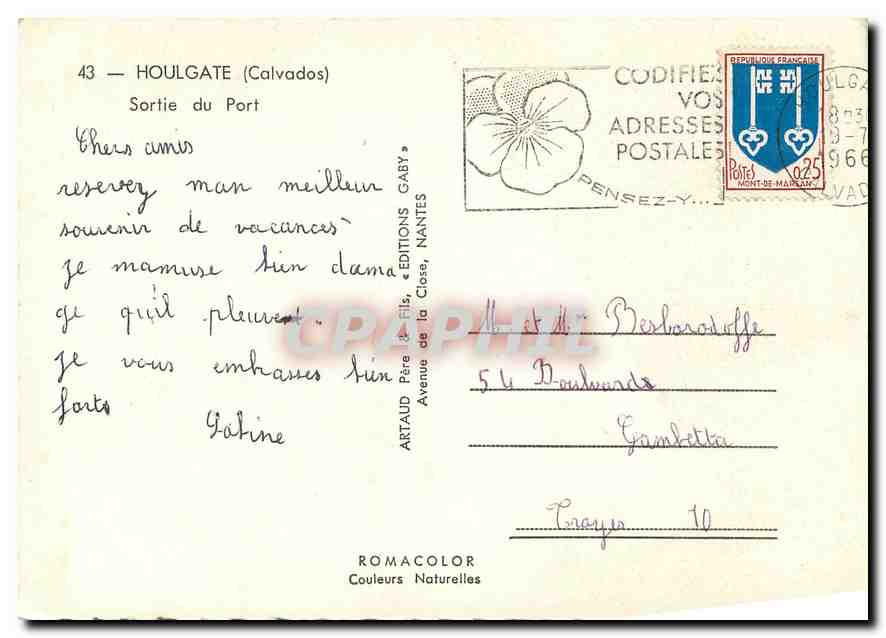 43 — HOULGATE (Calvados)
Sortie du Port
Chers amis
reservez man meilleur
souvenir de vacances
je mamuse bien dama
ge qu'il pleuvent.
je vous embrasses bien
forts
Sabine
ARTAUD Père & Fils, « EDITIONS GABY »
Avenue de la Close, NANTES
CODIFIEZ
VOS
ADRESSES
POSTALES
PENSEZ-Y...
REPUBLIQUE FRANÇAISE
POSTES 0,25
MONT-DE-MARSAN
18-7
1966
M et Mme Besbaradoffe
54 Boulvards
Gambetta
Troyes 10
ROMACOLOR
Couleurs Naturelles
CPAPHIL